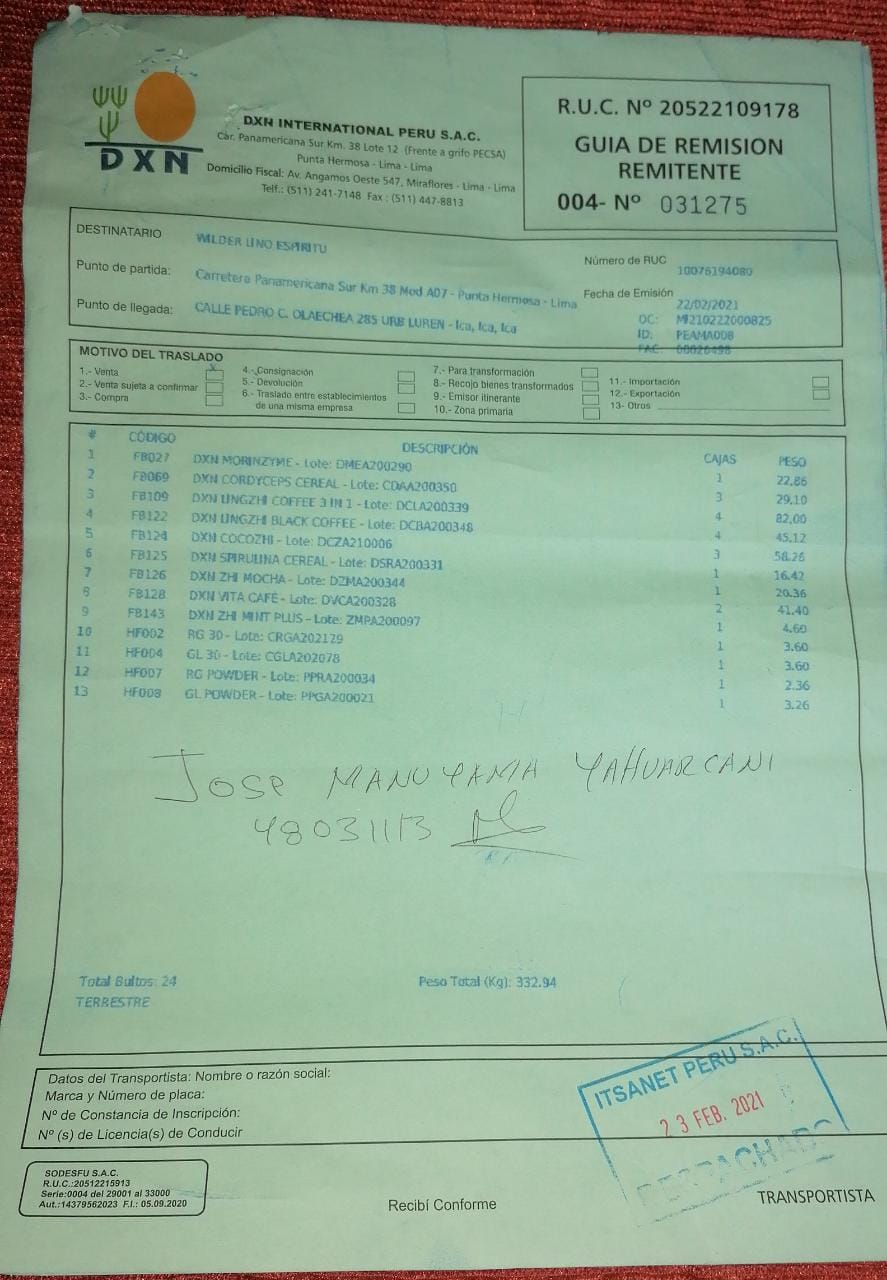 DXN
DXN INTERNATIONAL PERU S.A.C.
Car. Panamericana Sur Km. 38 Lote 12 (Frente a grifo PECSA)
Punta Hermosa - Lima - Lima
Domicilio Fiscal: Av. Angamos Oeste 547, Miraflores - Lima - Lima
Telf.: (511) 241-7148 Fax : (511) 447-8813
R.U.C. Nº 20522109178
GUIA DE REMISION
REMITENTE
004- Nº 031275
DESTINATARIO WILDER LINO ESPIRITU
Número de RUC 10076194080
Punto de partida: Carretera Panamericana Sur Km 38 Mod A07 - Punta Hermosa - Lima
Fecha de Emisión 22/02/2021
Punto de llegada: CALLE PEDRO C. OLAECHEA 285 URB LUREN - Ica, Ica, Ica
OC: MI210222000825
ID: PEAMA008
FAC: 00026498
MOTIVO DEL TRASLADO
1.- Venta X
2.- Venta sujeta a confirmar
3.- Compra
4.- Consignación
5.- Devolución
6.- Traslado entre establecimientos
de una misma empresa
7.- Para transformación
8.- Recojo bienes transformados
9.- Emisor itinerante
10.- Zona primaria
11.- Importación
12.- Exportación
13- Otros
# CÓDIGO DESCRIPCIÓN CAJAS PESO
1 FB027 DXN MORINZYME - Lote: DMEA200290 1 22.86
2 FB069 DXN CORDYCEPS CEREAL - Lote: CDAA200350 3 29.10
3 FB109 DXN LINGZHI COFFEE 3 IN 1 - Lote: DCLA200339 4 82.00
4 FB122 DXN LINGZHI BLACK COFFEE - Lote: DCBA200348 4 45.12
5 FB124 DXN COCOZHI - Lote: DCZA210006 3 58.26
6 FB125 DXN SPIRULINA CEREAL - Lote: DSRA200331 1 16.42
7 FB126 DXN ZHI MOCHA - Lote: DZMA200344 1 20.36
8 FB128 DXN VITA CAFÉ - Lote: DVCA200328 2 41.40
9 FB143 DXN ZHI MINT PLUS - Lote: ZMPA200097 1 4.60
10 HF002 RG 30 - Lote: CRGA202129 1 3.60
11 HF004 GL 30 - Lote: CGLA202078 1 3.60
12 HF007 RG POWDER - Lote: PPRA200034 1 2.36
13 HF008 GL POWDER - Lote: PPGA200021 1 3.26
JOSE MANUYAMA YAHUARCANI
48031113
Total Bultos: 24
Peso Total (Kg): 332.94
TERRESTRE
Datos del Transportista: Nombre o razón social:
Marca y Número de placa:
Nº de Constancia de Inscripción:
Nº (s) de Licencia(s) de Conducir
ITSANET PERU S.A.C.
23 FEB. 2021
DESPACHADO
SODESFU S.A.C.
R.U.C.:20512215913
Serie:0004 del 29001 al 33000
Aut.:14379562023 F.I.: 05.09.2020
Recibí Conforme
TRANSPORTISTA